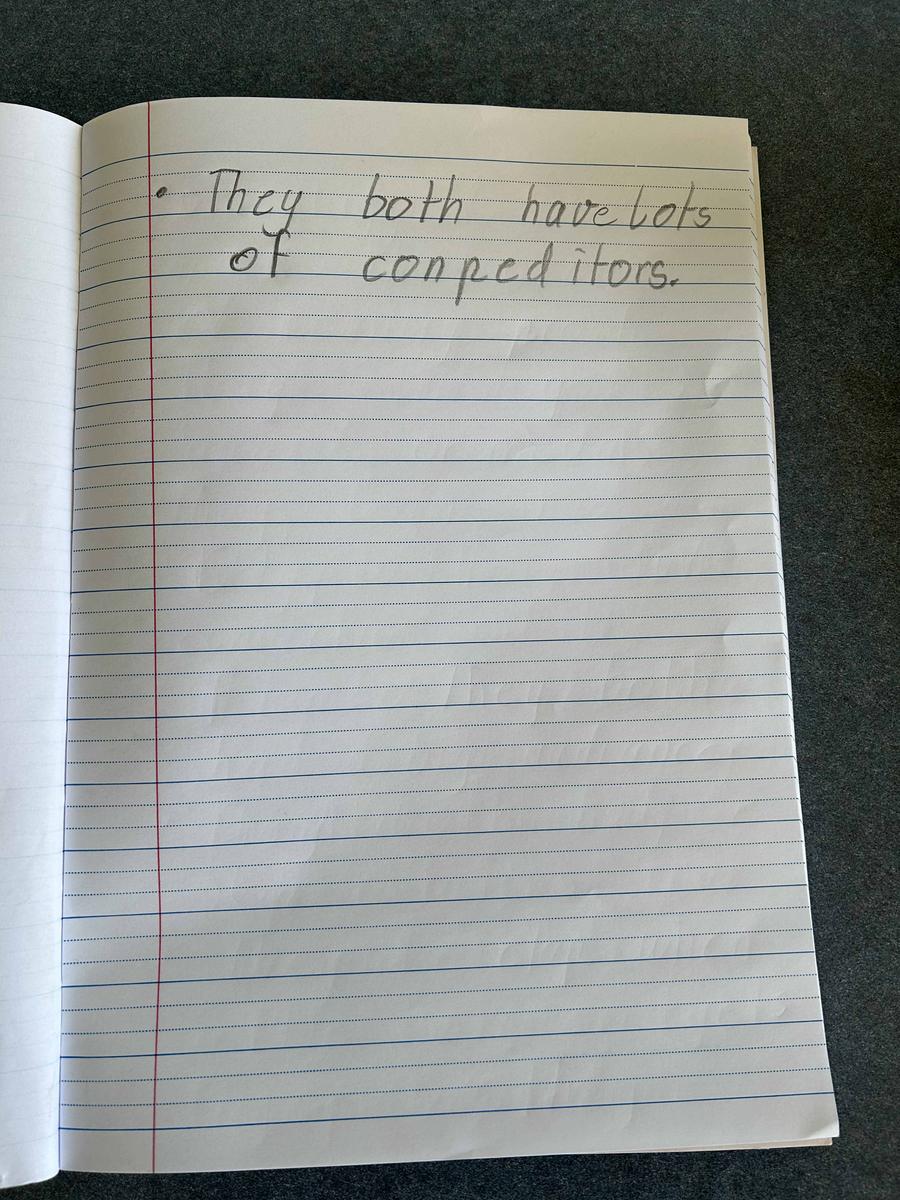 • They both have lots
of conpeditors.